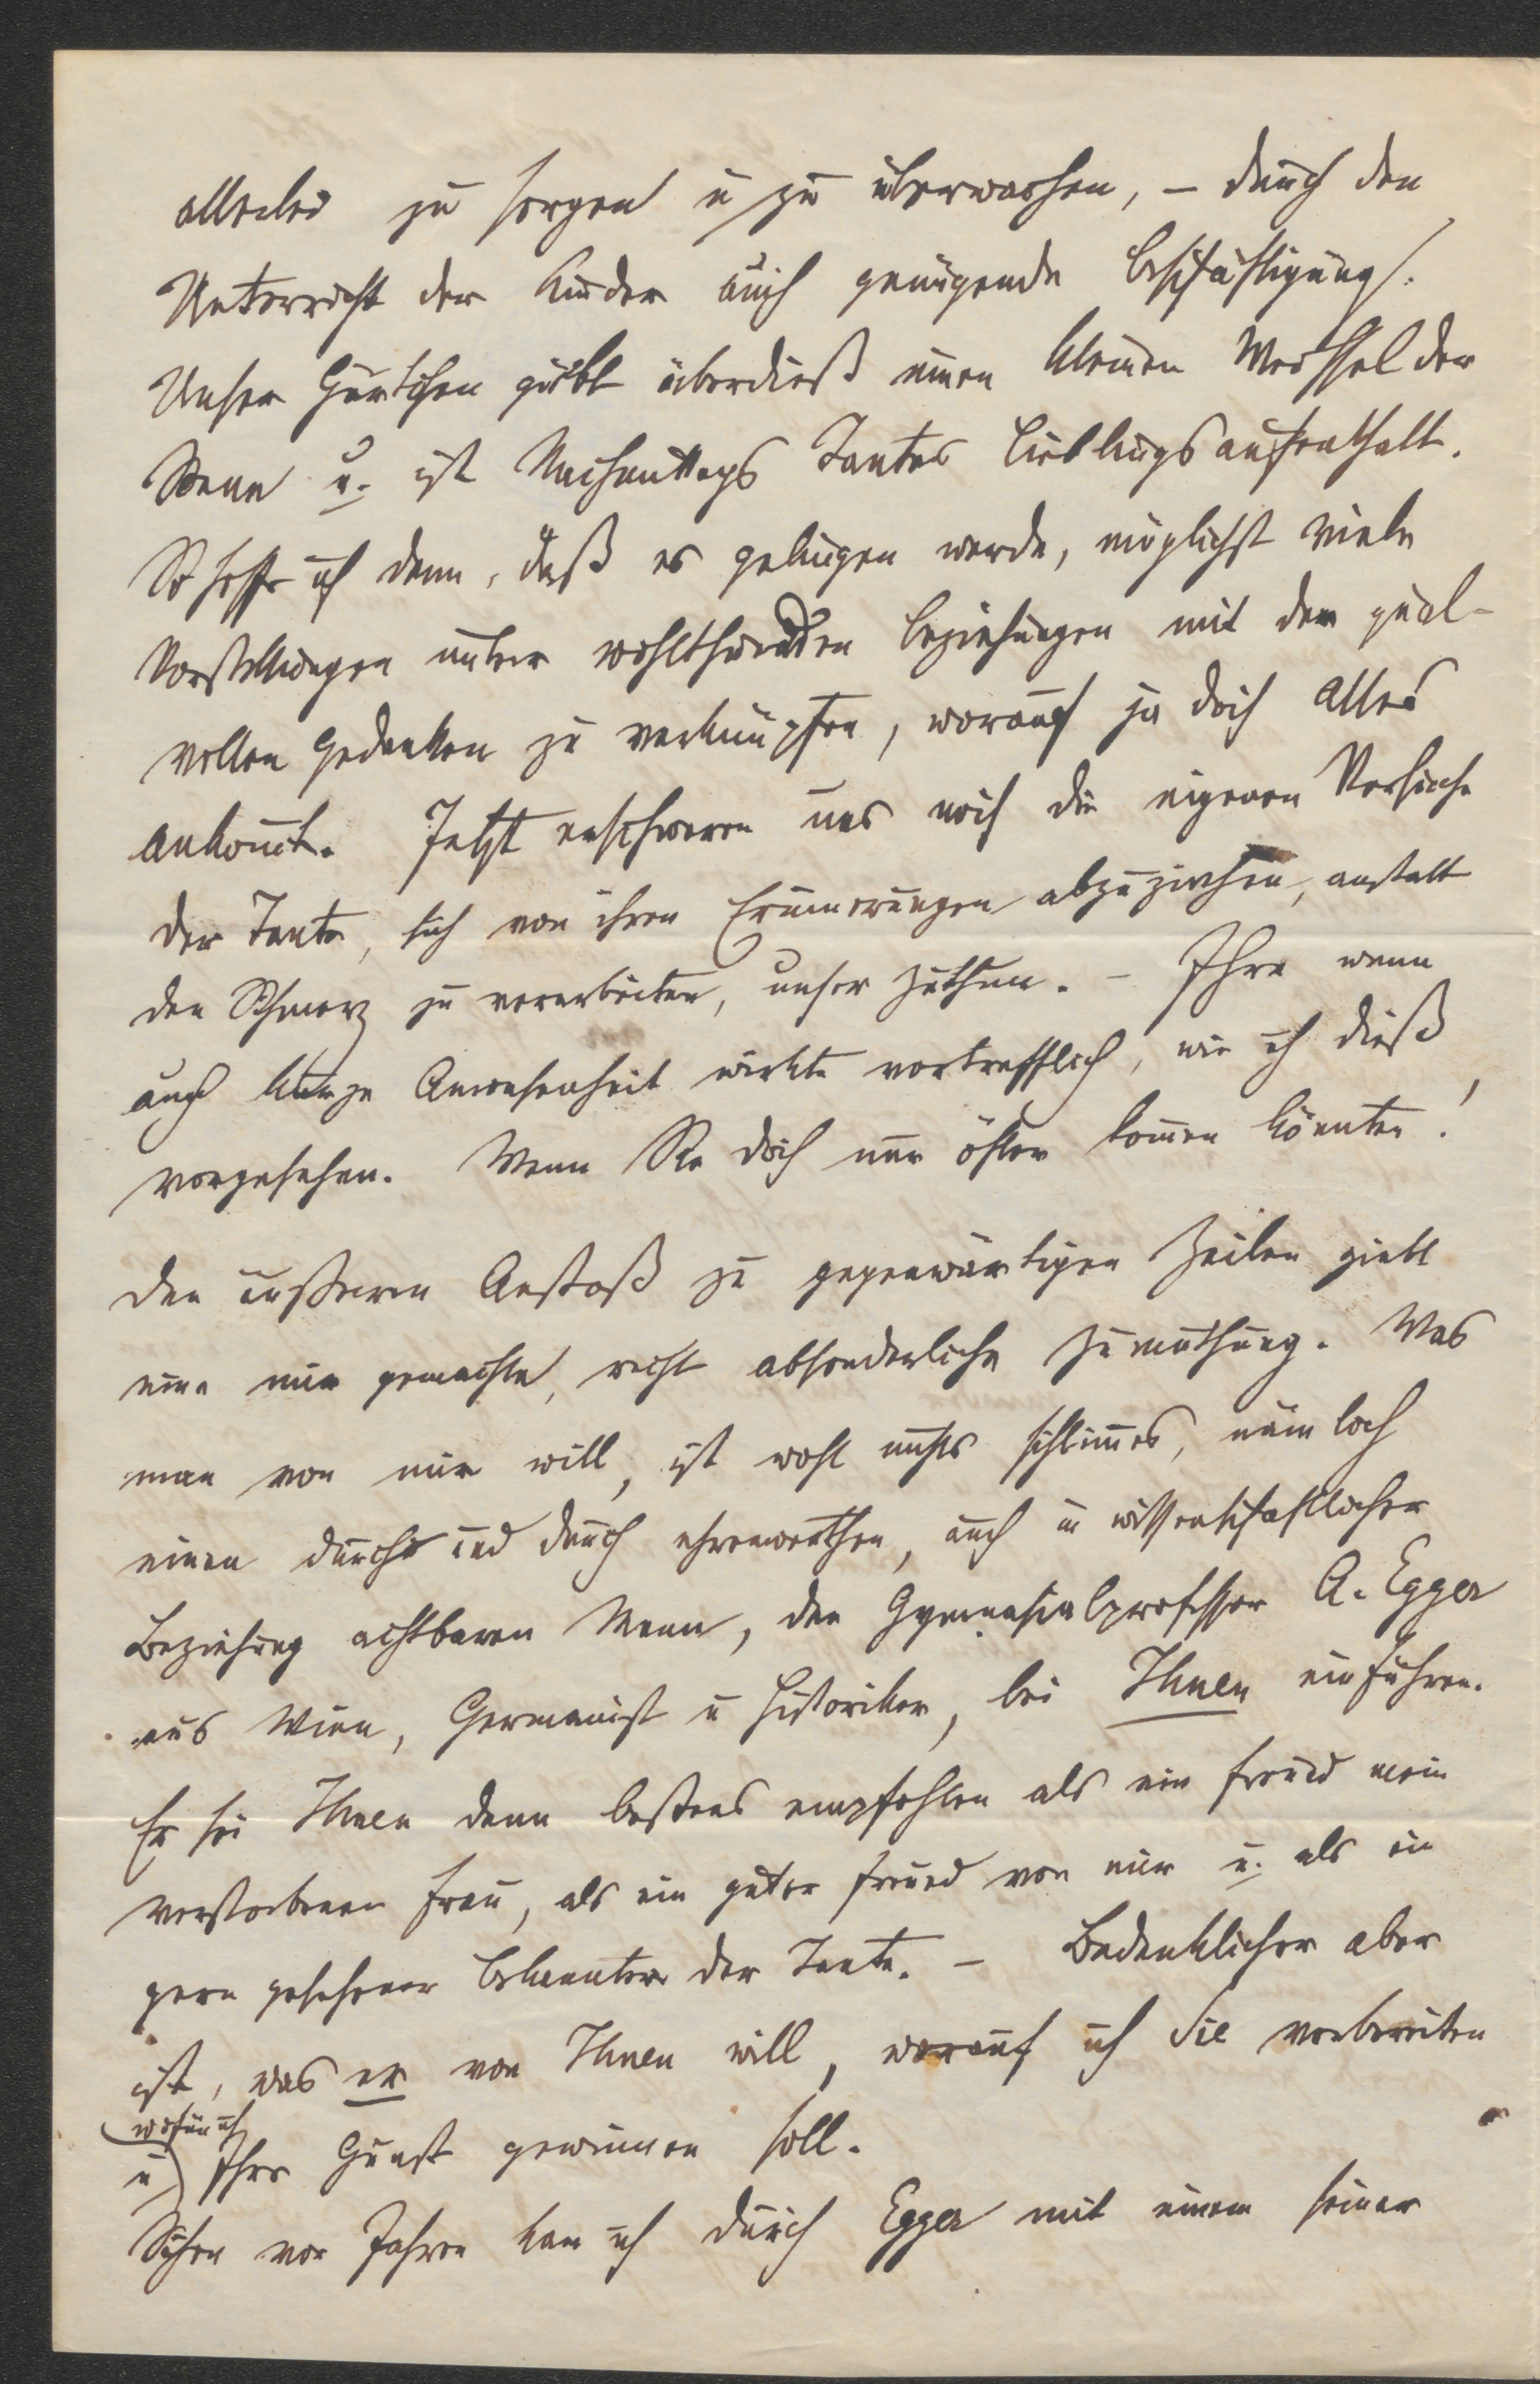 allerlei zu sorgen u zu überwachen, – durch den
Unterricht der Kinder auch genügende Beschäftigung.
Unser Gärtchen giebt überdieß einen kleinen Wechsel der
Scene u. ist Nachmittags Tantes Lieblingsaufenthalt.
So hoffe ich denn, daß es gelingen werde, möglichst viele
Vorstellungen unter wohlthuenden Beziehungen mit den qual-
vollen Gedanken zu verknüpfen, worauf ja doch Alles
ankom̄t. Jetzt erschweren uns noch die eigenen Versuche
der Tante, sich von ihren Erinnerungen abzuziehen, anstatt
den Schmerz zu verarbeiten, unser Zuthun. – Ihre wenn
auch kurze Anwesenheit wirkte vortrefflich, wie ich dieß
vorgesehen. Wenn Sie doch nur öfter kom̄en könnten!
Den äußeren Anstoß zu gegenwärtigen Zeilen giebt
eine mir gemachte, recht absonderliche Zumuthung. Was
man von mir will, ist wohl nichts schlim̄es, nämlich
einen durch und durch ehrenwerthen, auch in wissenschaftlicher
Beziehung achtbaren Mann, den Gymnasialprofessor A. Egger
aus Wien, Germanist u Historiker, bei Ihnen einführen.
Er sei Ihnen denn bestens empfohlen als ein Freund mein
verstorbenen Frau, als ein guter Freund von mir u. als ein
gern gesehener Bekannter der Tante. – Bedenklicher aber
ist, was er von Ihnen will, worauf ich Sie vorbereiten
wofür ich
u Ihre Gunst gewinnen soll.
Schon vor Jahren kam ich durch Egger mit einem seiner